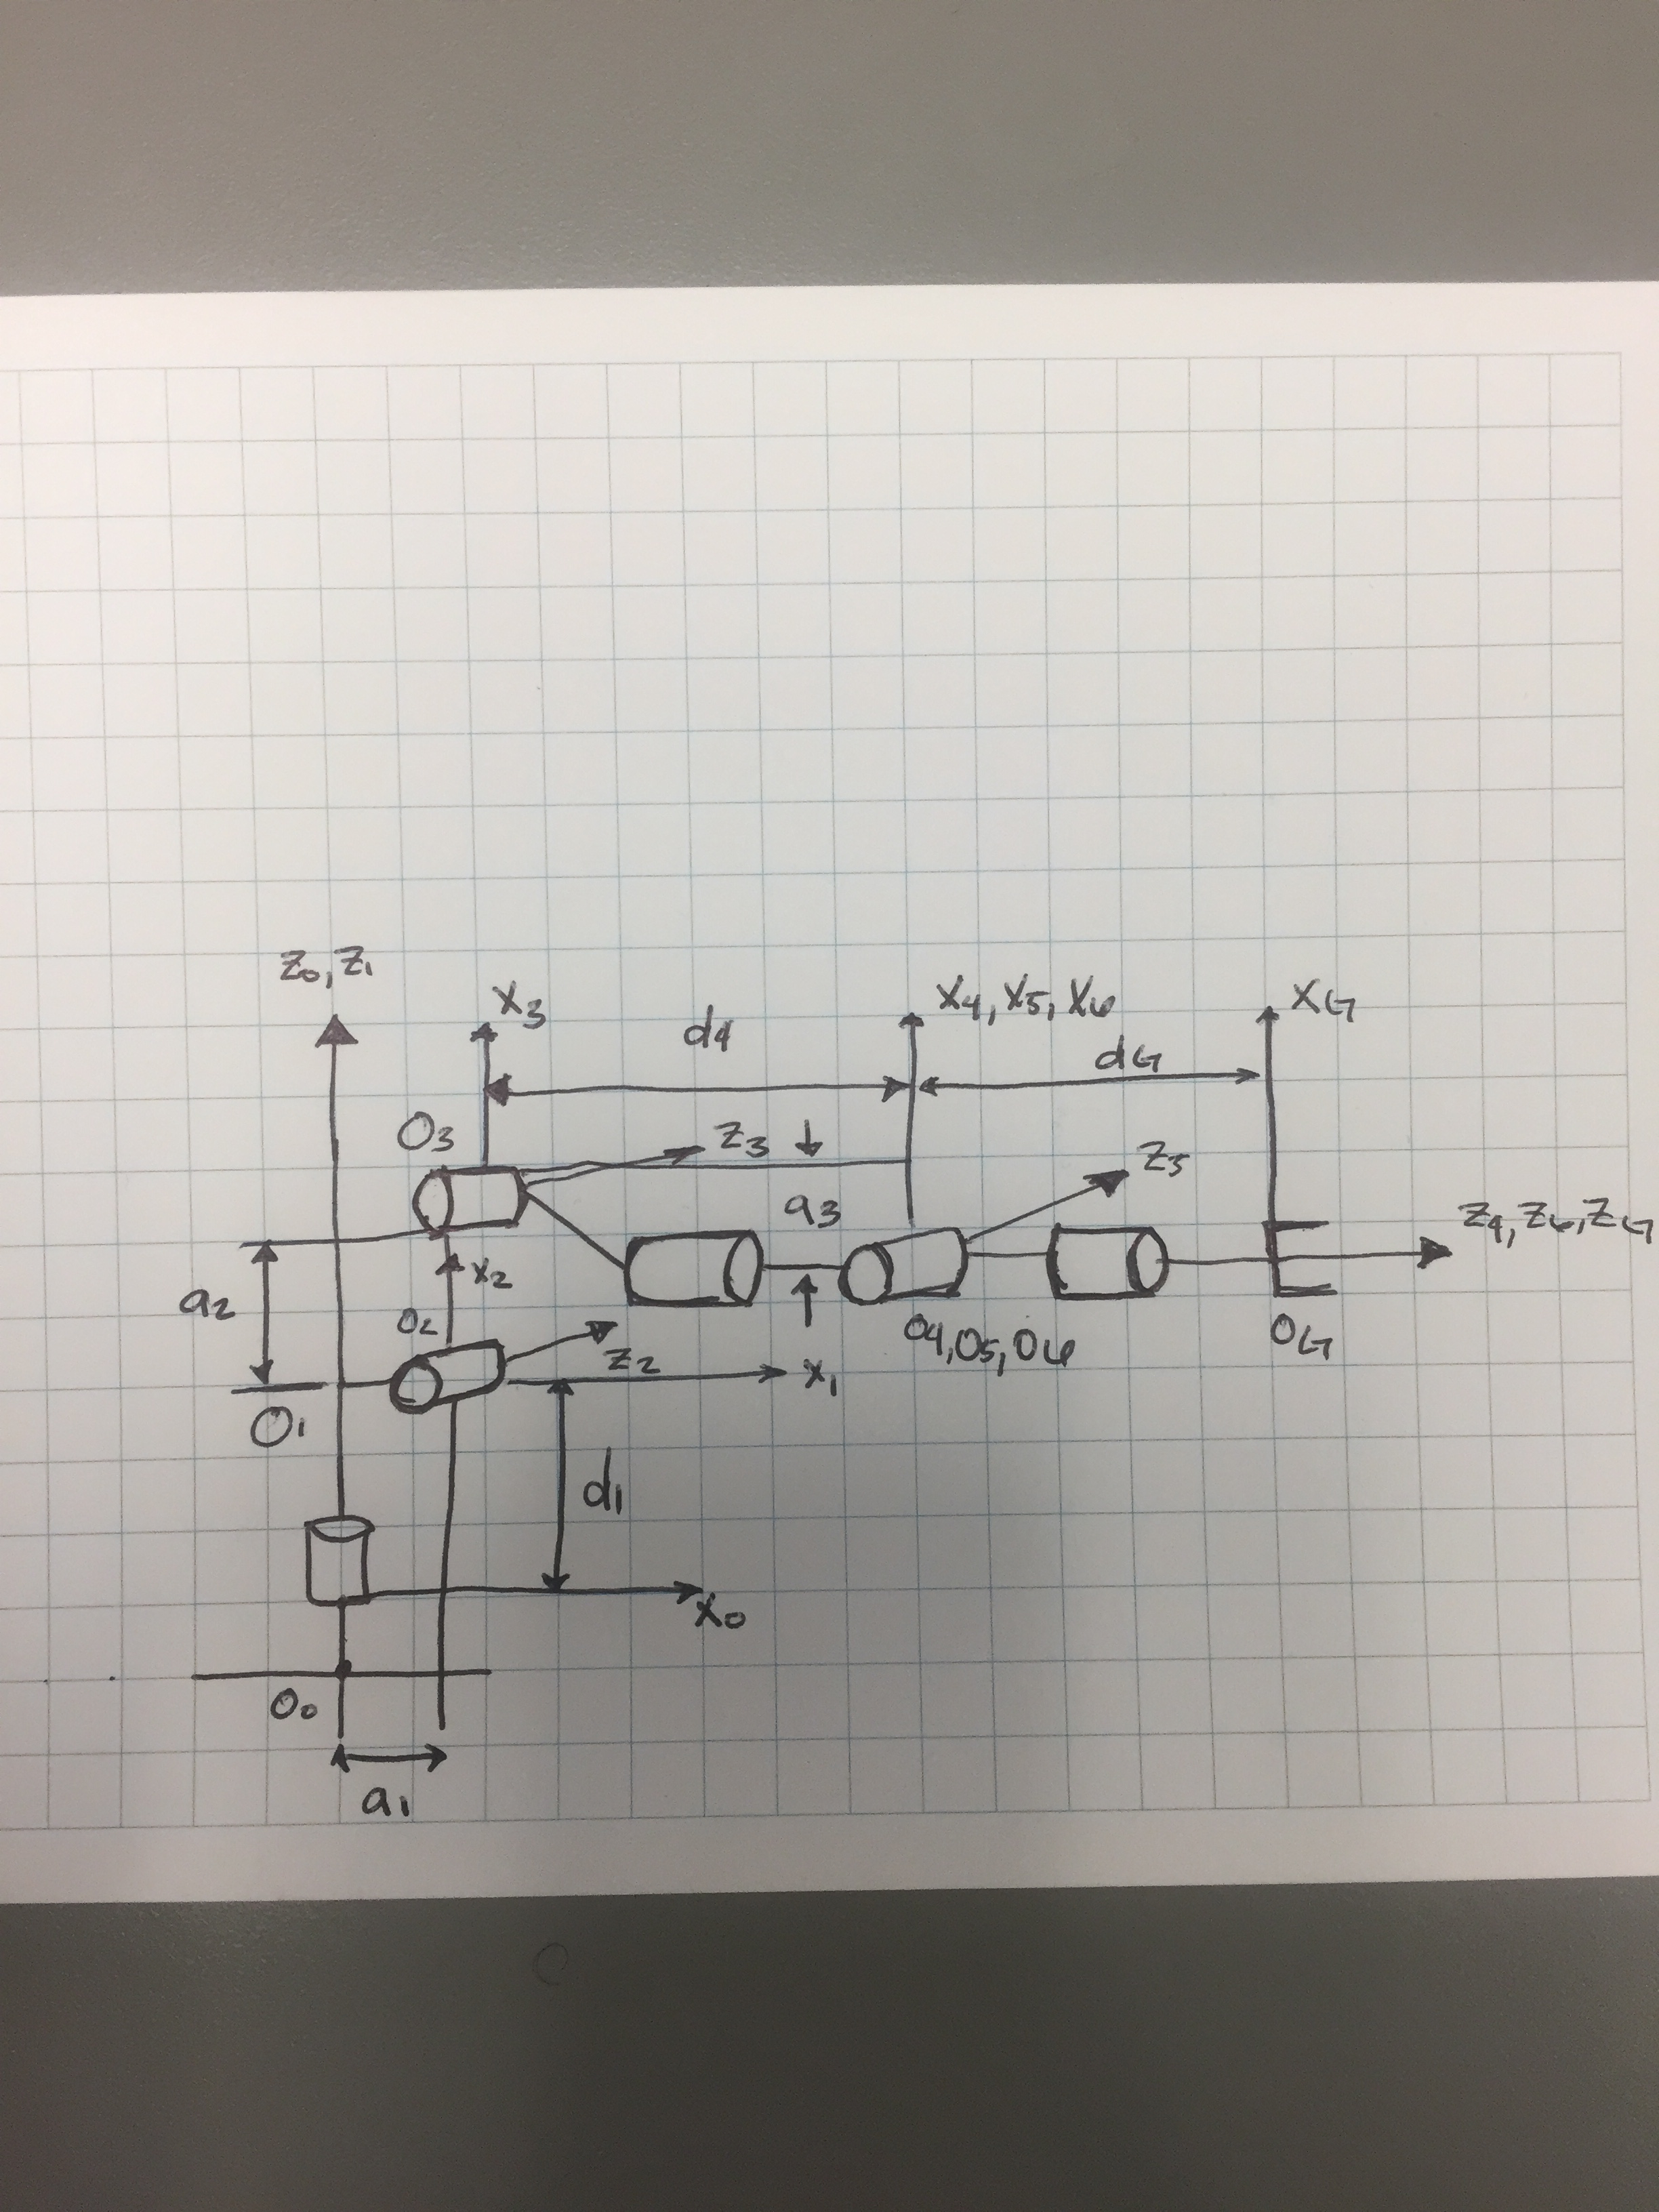 z₀, z₁
x₃
d₄
x₄, x₅, x₆
x_G
d_G
O₃
z₃
z₅
a₃
z₄, z₆, z_G
a₂
x₂
O₂
z₂
O₄, O₅, O₆
O_G
x₁
O₁
d₁
x₀
O₀
a₁